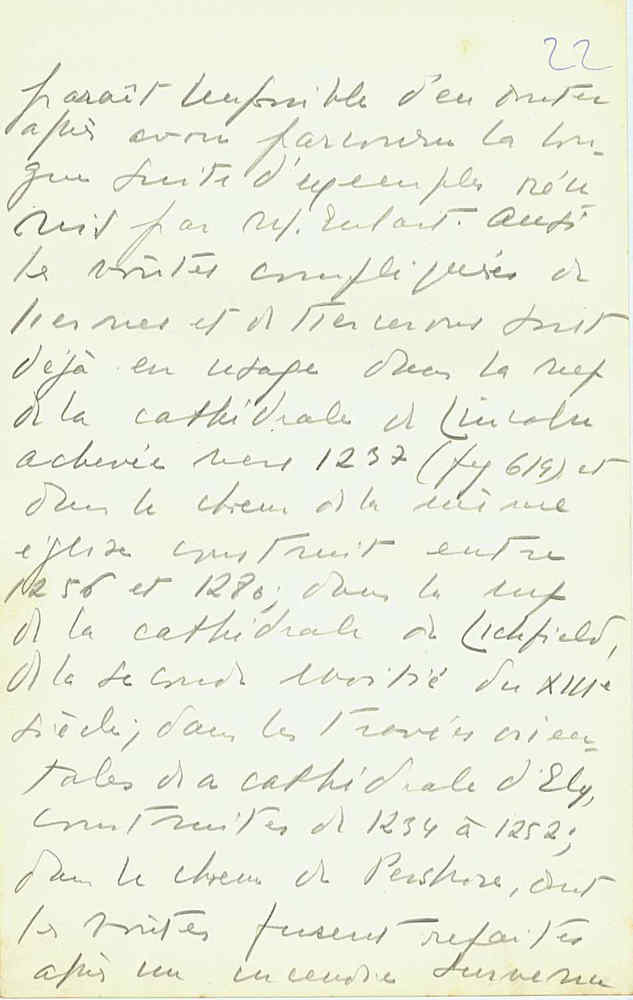 22
paraît impossible d'en douter
après avoir parcouru la lon-
gue suite d'exemples réu
nis par M. Enlart. Aussi
les voûtes compliquées de
liernes et de tiercerons sont
déjà en usage dans la nef
de la cathédrale de Lincoln
achevée vers 1237 (fig 619) et
dans le chœur de la même
église construit entre
1256 et 1280; dans la nef
de la cathédrale de Lichfield,
de la seconde moitié du XIIIe
siècle; dans les travées orien-
tales de a cathédrale d'Ely,
construites de 1234 à 1252;
dans le chœur de Pershore, dont
les voûtes furent refaites
après un incendie survenu